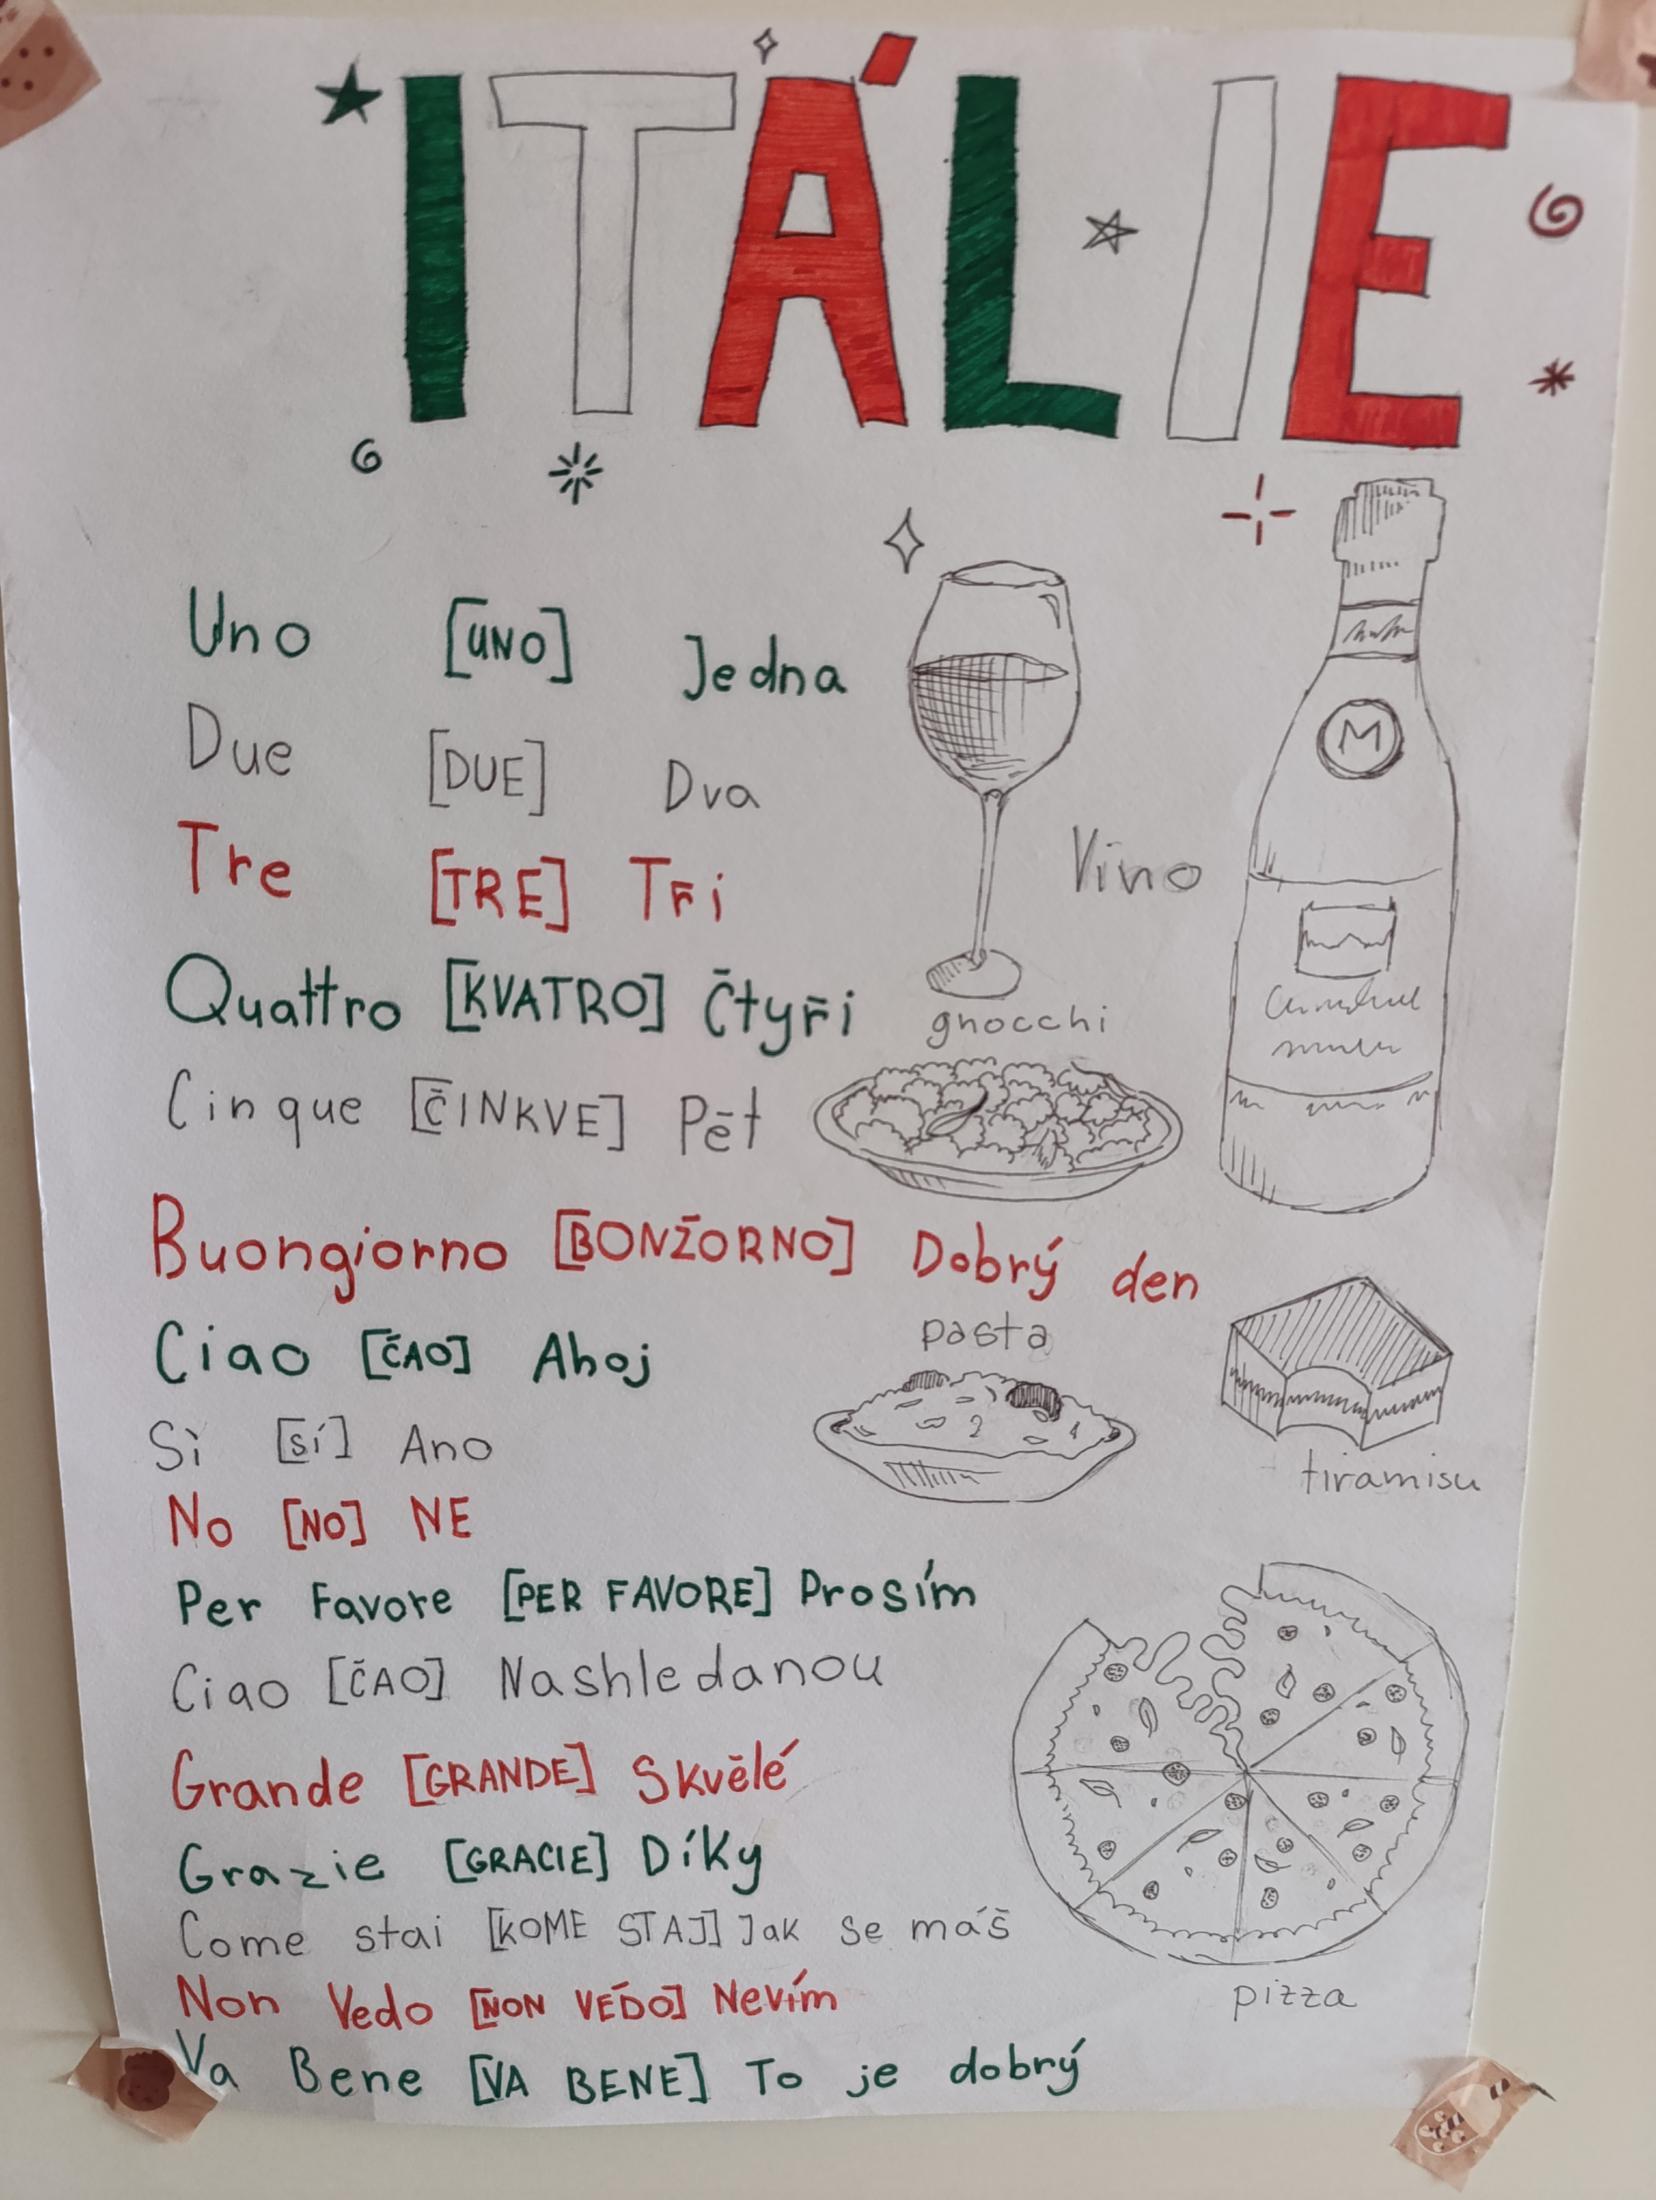 ITÁLIE
Uno [UNO] Jedna
Due [DUE] Dva
Tre [TRE] Tři
Quattro [KVATRO] Čtyři
Cinque [ČINKVE] Pět
Buongiorno [BONŽORNO] Dobrý den
Ciao [ČAO] Ahoj
Sì [Sí] Ano
No [NO] NE
Per Favore [PER FAVORE] Prosím
Ciao [ČAO] Nashledanou
Grande [GRANDE] Skvělé
Grazie [GRACIE] Díky
Come stai [KOME STAJ] Jak se máš
Non Vedo [NON VÉDO] Nevím
Va Bene [VA BENE] To je dobrý
M
Víno
gnocchi
pasta
tiramisu
pizza